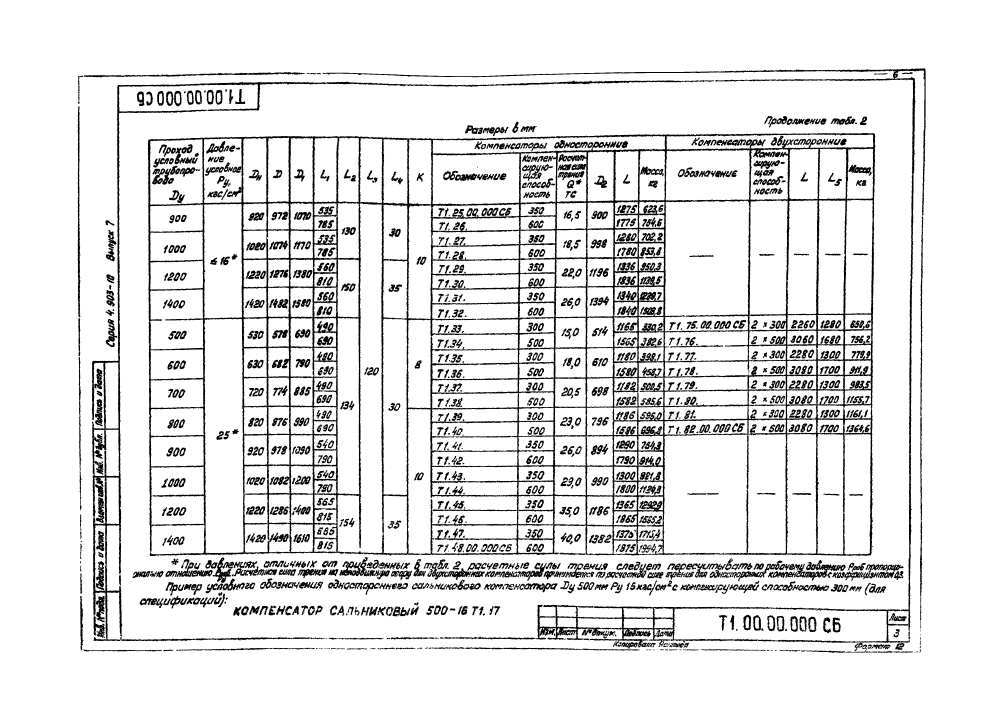 6
Т1.00.00.000 СБ
Размеры в мм
Продолжение табл. 2
Проход условный трубопровода Dу | Давление условное Pу, кгс/см² | D₁ | L₁ | L₂ | L₃ | L₄ | К | Компенсаторы односторонние | Компенсаторы двухсторонние
Обозначение | Компенсирующая способность | Расчетная сила трения Q* тс | D₂ | L | Масса, кг | Обозначение | Компенсирующая способность | L | L₅ | Масса, кг
900 | ≤ 16* | 920 | 972 | 1070 | 535 | 130 | 120 | 30 | 10 | Т1.25.00.000 СБ | 350 | 16,5 | 900 | 1275 | 623,6
785 | Т1.26. | 600 | 1775 | 754,6
1000 | 1020 | 1074 | 1170 | 535 | Т1.27. | 350 | 18,5 | 998 | 1280 | 702,2
785 | Т1.28. | 600 | 1780 | 853,8
1200 | 1220 | 1276 | 1380 | 560 | 150 | 35 | Т1.29. | 350 | 22,0 | 1196 | 1336 | 950,3
810 | Т1.30. | 600 | 1836 | 1139,5
1400 | 1420 | 1482 | 1580 | 560 | Т1.31. | 350 | 26,0 | 1394 | 1340
810 | Т1.32. | 600 | 1840
500 | 25* | 530 | 578 | 690 | 490 | 134 | 30 | 8 | Т1.33. | 300 | 15,0 | 514 | 1165 | 330,2 | Т1.75.00.000 СБ | 2 × 300 | 2260 | 1280 | 650,6
690 | Т1.34. | 500 | 1565 | 382,6 | Т1.76. | 2 × 500 | 3060 | 1680 | 756,2
600 | 630 | 682 | 790 | 490 | Т1.35. | 300 | 18,0 | 610 | 1180 | 398,1 | Т1.77. | 2 × 300 | 2280 | 1300 | 778,9
690 | Т1.36. | 500 | 1580 | 458,7 | Т1.78. | 2 × 500 | 3080 | 1700 | 911,9
700 | 720 | 774 | 885 | 490 | Т1.37. | 300 | 20,5 | 698 | 1182 | 500,5 | Т1.79. | 2 × 300 | 2280 | 1300 | 983,5
690 | Т1.38. | 500 | 1582 | 585,6 | Т1.80. | 2 × 500 | 3080 | 1700 | 1155,7
800 | 820 | 876 | 990 | 490 | Т1.39. | 300 | 23,0 | 796 | 1186 | 595,0 | Т1.81. | 2 × 300 | 2280 | 1300 | 1161,1
690 | Т1.40. | 500 | 1586 | 696,8 | Т1.82.00.000 СБ | 2 × 500 | 3080 | 1700 | 1364,6
900 | 920 | 978 | 1090 | 540 | 10 | Т1.41. | 350 | 26,0 | 894 | 1290 | 784,8
790 | Т1.42. | 600 | 1790 | 914,0
1000 | 1020 | 1082 | 1200 | 540 | Т1.43. | 350 | 29,0 | 990 | 1300 | 981,8
790 | Т1.44. | 600 | 1800
1200 | 1220 | 1286 | 1400 | 565 | 154 | 35 | Т1.45. | 350 | 35,0 | 1186 | 1365 | 1292,9
815 | Т1.46. | 600 | 1865 | 1555,2
1400 | 1420 | 1490 | 1610 | 565 | Т1.47. | 350 | 40,0 | 1382 | 1375 | 1713,4
815 | Т1.48.00.000 СБ | 600 | 1875 | 1994,7
* При давлениях, отличных от приведенных в табл. 2, расчетные силы трения следует пересчитывать по рабочему давлению Pраб пропорци-
онально отношению. Расчетная сила трения на неподвижную опору для двухсторонних компенсаторов принимается по расчетной силе трения для односторонних компенсаторов с коэффициентом
Пример условного обозначения одностороннего сальникового компенсатора Dу 500 мм Pу 16 кгс/см² с компенсирующей способностью 300 мм (для
спецификаций):
КОМПЕНСАТОР САЛЬНИКОВЫЙ 500-16 Т1.17
Изм. Лист № докум. Подпись Дата
Т1.00.00.000 СБ
Лист
3
Копировал
Формат 12
Серия 4.903-10 Выпуск 7
Подпись и дата
Инв. № дубл.
Взам. инв. №
Подпись и дата
Инв. № подл.